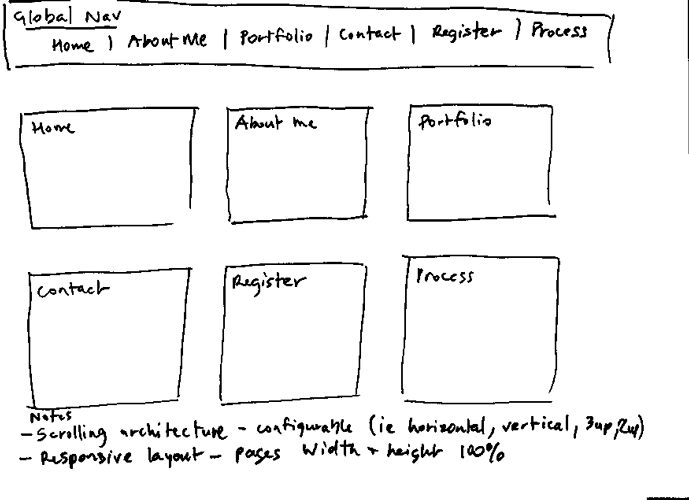 Global Nav
Home | About Me | Portfolio | Contact | Register | Process
Home
About me
Portfolio
Contact
Register
Process
Notes
- Scrolling architecture - configurable (ie horizontal, vertical, 3up, 2up)
- Responsive layout - pages width + height 100%